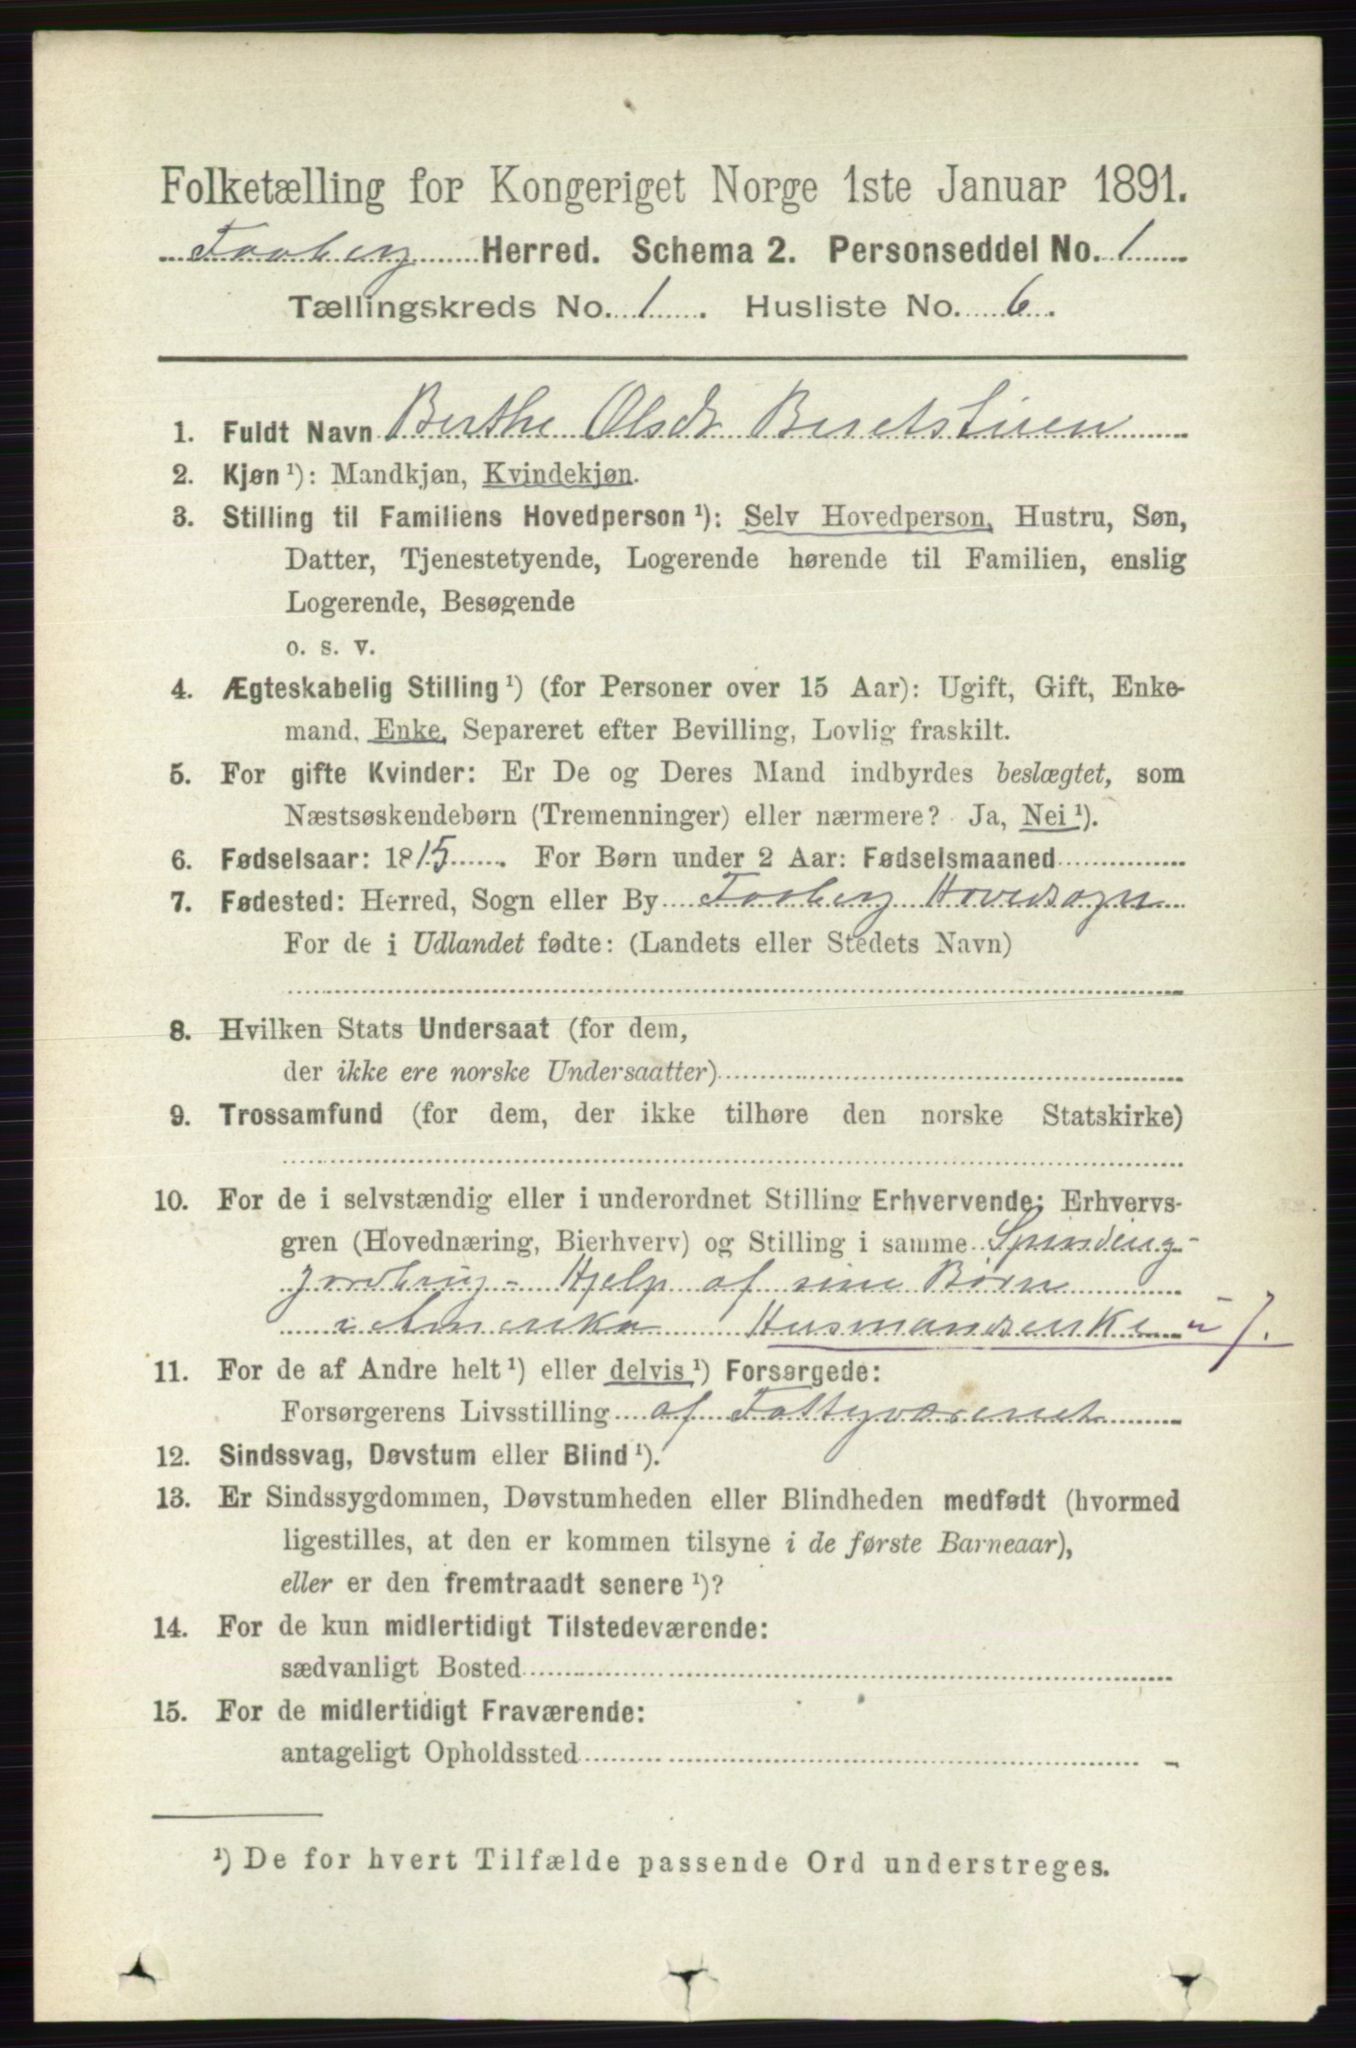 Folketælling for Kongeriget Norge 1ste Januar 1891.
Faaberg Herred. Schema 2. Personseddel No. 1
Tællingskreds No. 1. Husliste No. 6.
1. Fuldt Navn Berthe Olsdt Beretstuen
2. Kjøn ¹): Mandkjøn, Kvindekjøn.
3. Stilling til Familiens Hovedperson ¹): Selv Hovedperson, Hustru, Søn,
Datter, Tjenestetyende, Logerende hørende til Familien, enslig
Logerende, Besøgende
o. s. v.
4. Ægteskabelig Stilling ¹) (for Personer over 15 Aar): Ugift, Gift, Enke-
mand, Enke, Separeret efter Bevilling, Lovlig fraskilt.
5. For gifte Kvinder: Er De og Deres Mand indbyrdes beslægtet, som
Næstsøskendebørn (Tremenninger) eller nærmere? Ja, Nei ¹).
6. Fødselsaar: 1815. For Børn under 2 Aar: Fødselsmaaned
7. Fødested: Herred, Sogn eller By Faaberg Hovedsogn
For de i Udlandet fødte: (Landets eller Stedets Navn)
8. Hvilken Stats Undersaat (for dem,
der ikke ere norske Undersaatter)
9. Trossamfund (for dem, der ikke tilhøre den norske Statskirke)
10. For de i selvstændig eller i underordnet Stilling Erhvervende: Erhvervs-
gren (Hovednæring, Bierhverv) og Stilling i samme Spinding-
Jordbrug - Hjelp af sine Børn
i Amerika Husmandsenke u J.
11. For de af Andre helt ¹) eller delvis ¹) Forsørgede:
Forsørgerens Livsstilling af Fattigvæsenet
12. Sindssvag, Døvstum eller Blind ¹).
13. Er Sindssygdommen, Døvstumheden eller Blindheden medfødt (hvormed
ligestilles, at den er kommen tilsyne i de første Barneaar),
eller er den fremtraadt senere ¹)?
14. For de kun midlertidigt Tilstedeværende:
sædvanligt Bosted
15. For de midlertidigt Fraværende:
antageligt Opholdssted
¹) De for hvert Tilfælde passende Ord understreges.